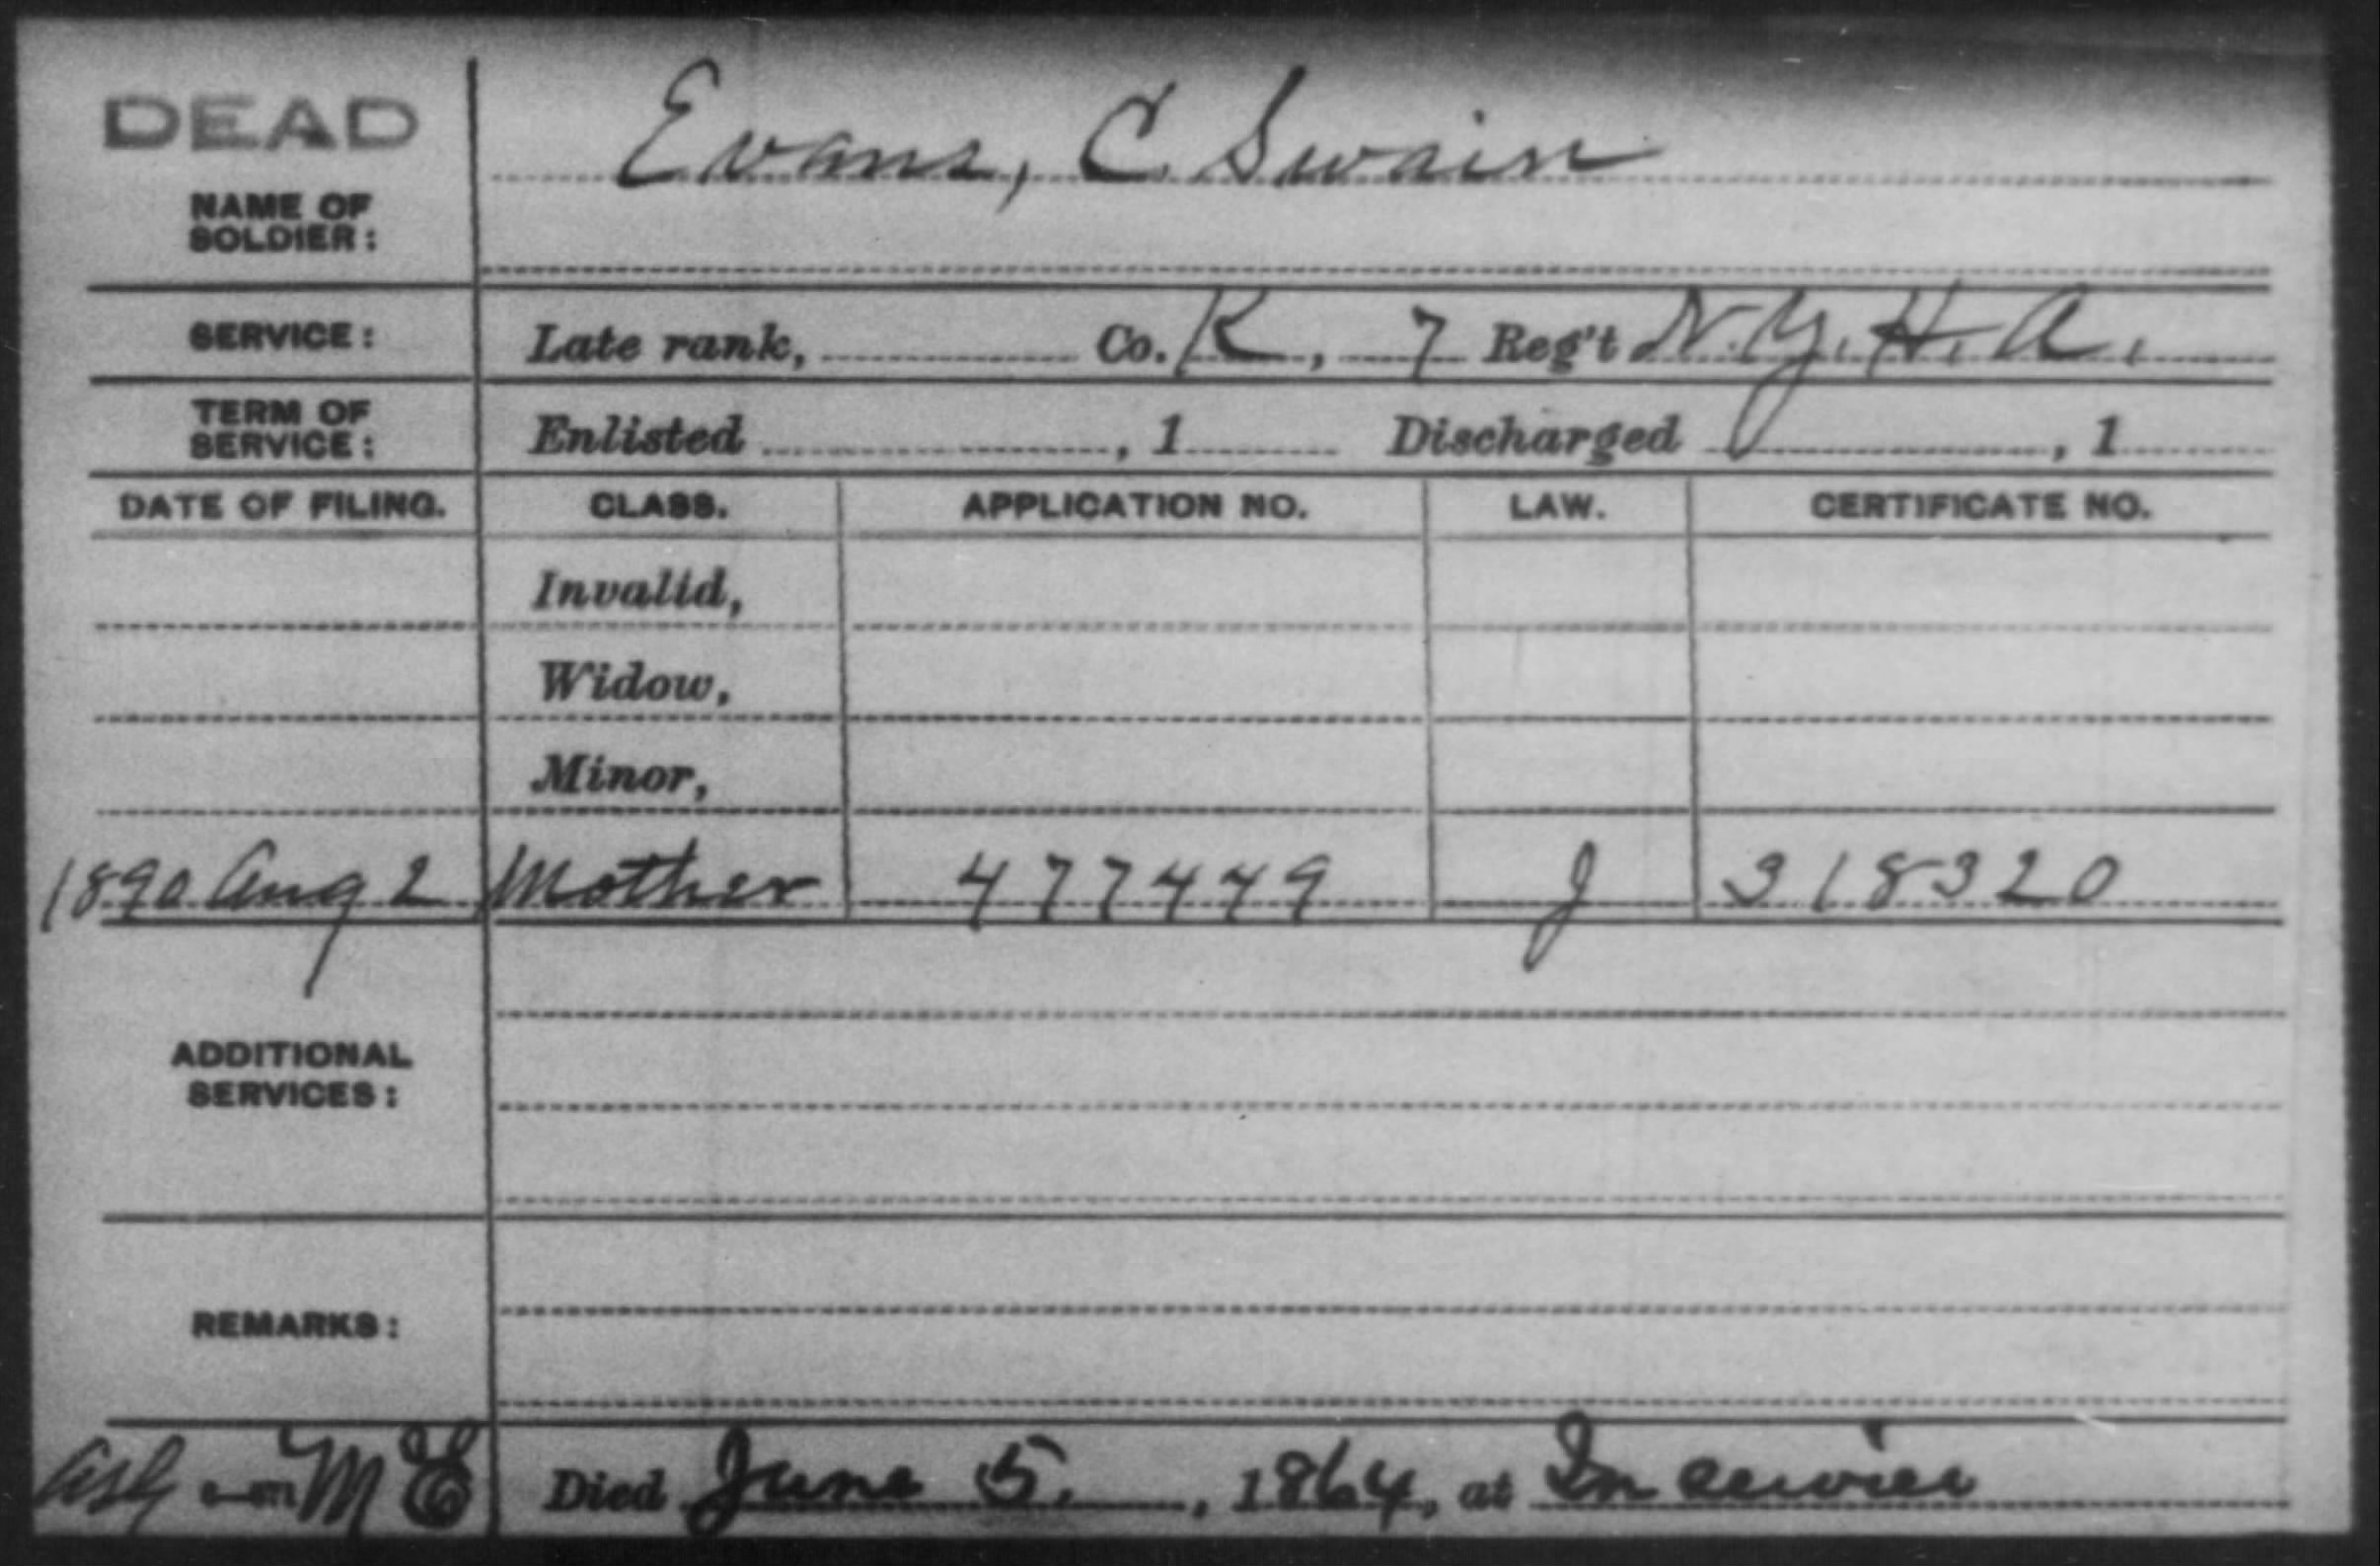 DEAD
Evans, C Swain
NAME OF
SOLDIER:
SERVICE: Late rank, Co. K, 7 Reg't N.Y.H.A.
TERM OF
SERVICE: Enlisted , 1 Discharged , 1
DATE OF FILING. CLASS. APPLICATION NO. LAW. CERTIFICATE NO.
Invalid,
Widow,
Minor,
1890 Aug 2 Mother 477449 J 318320
ADDITIONAL
SERVICES:
REMARKS:
M E Died June 5. , 1864, at In service